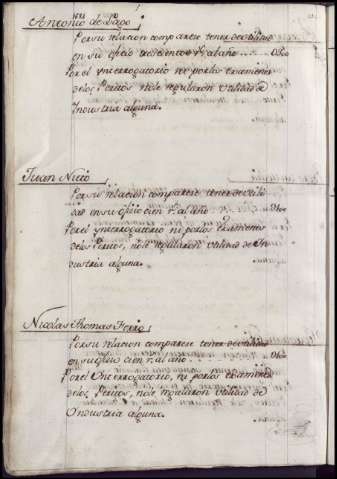 Antonio de Sapo
Por su relacion comparece tener de utilidad
en su oficio trescientos rs. al año
Por el ynterrogatorio ni por los examenes
de los Peritos, no le regularon utilidad de
Yndustria alguna.
Juan Nuio
Por su relacion comparece tener de utili
dad en su oficio cien rs. al año
Por el ynterrogatorio ni por los examenes
de los Peritos, no le regularon utilidad de In
dustria alguna.
Nicolas Thomas Ferro
Por su relacion comparece tener de utilidad
en su oficio cien rs. al año
Por el Ynterrogatorio, ni por los examenes
de los Peritos, no le regularon utilidad de
Yndustria alguna.